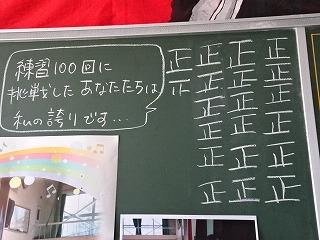 練習100回に
挑戦した あなたたちは
私の誇りです…
正 正 正 正
正 正 正
正 正 正
正 正 正
正 正 正
正 正 正